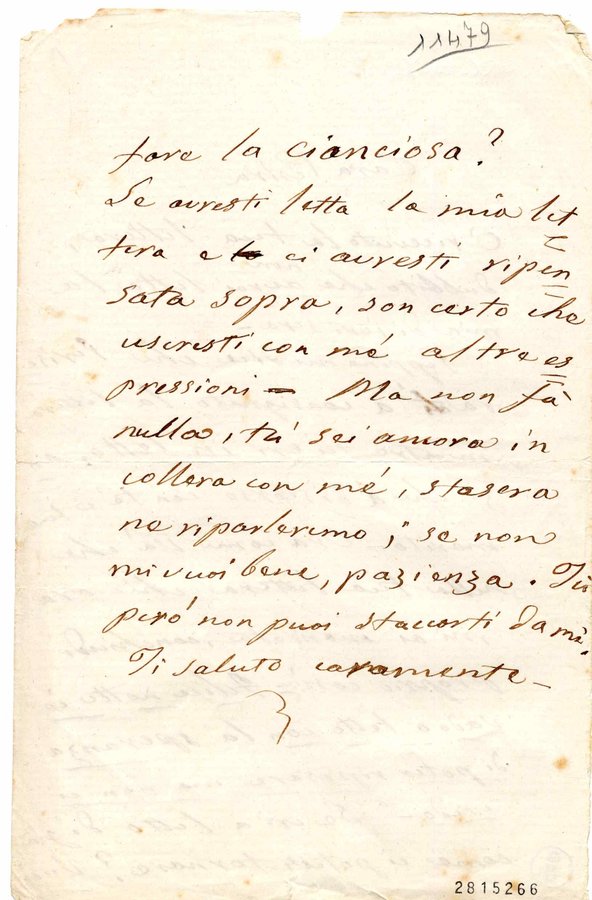 11479
fare la cianciosa?
Se avresti letta la mia let
tera e ci avresti ripen
sata sopra, son certo che
useresti con mé altre es
pressioni — Ma non fà
nulla, tú sei ancora in
collera con mé, stasera
ne riparleremo; se non
mi vuoi bene, pazienza. Tú
peró non puoi staccarti da mé.
Ti saluto caramente —
2815266